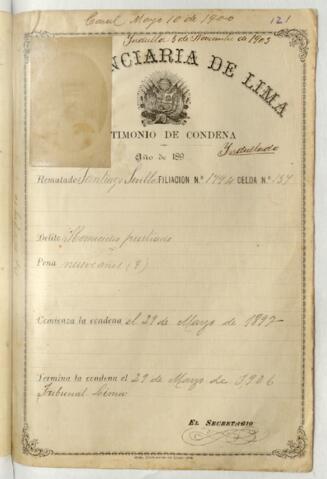 Mayo 10 de 1900
121
Indulto 5 de Noviembre de 1903
NCIARIA DE LIMA
TIMONIO DE CONDENA
Año de 189
Indultado
Rematado Santiago FILIACION N.º 1794 CELDA N.º 137
Delito Homicidio
Pena nueve años (9)
Comienza la condena el 29 de Mayo de 1897
Termina la condena el 29 de Mayo de 1906
Tribunal Lima
EL SECRETARIO